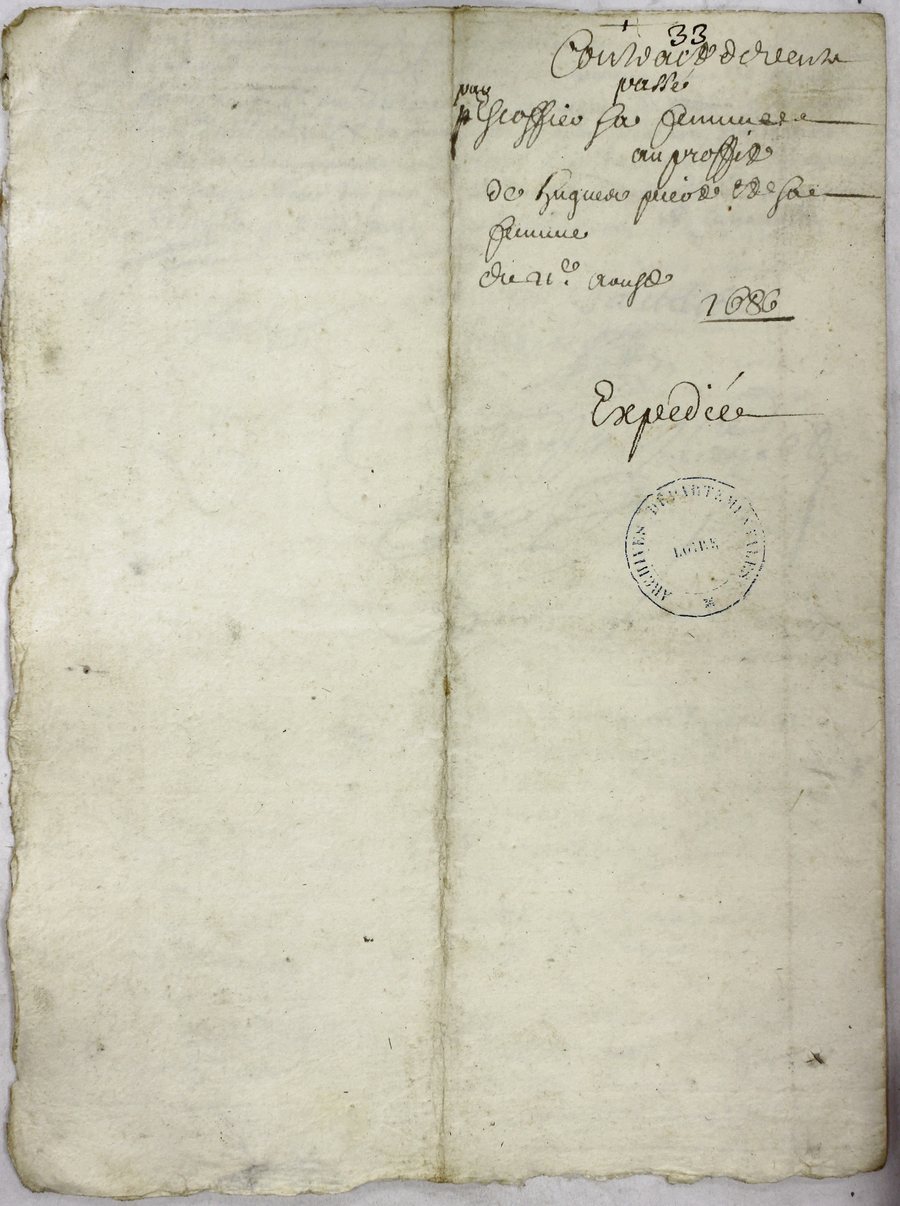 33
Contract de vente
passé
par
p Escoffier sa femme
au proffit
de hugues & de sa
femme
du 21e. aoust
1686
Expediée
ARCHIVES DÉPARTEMENTALES
LOIRE